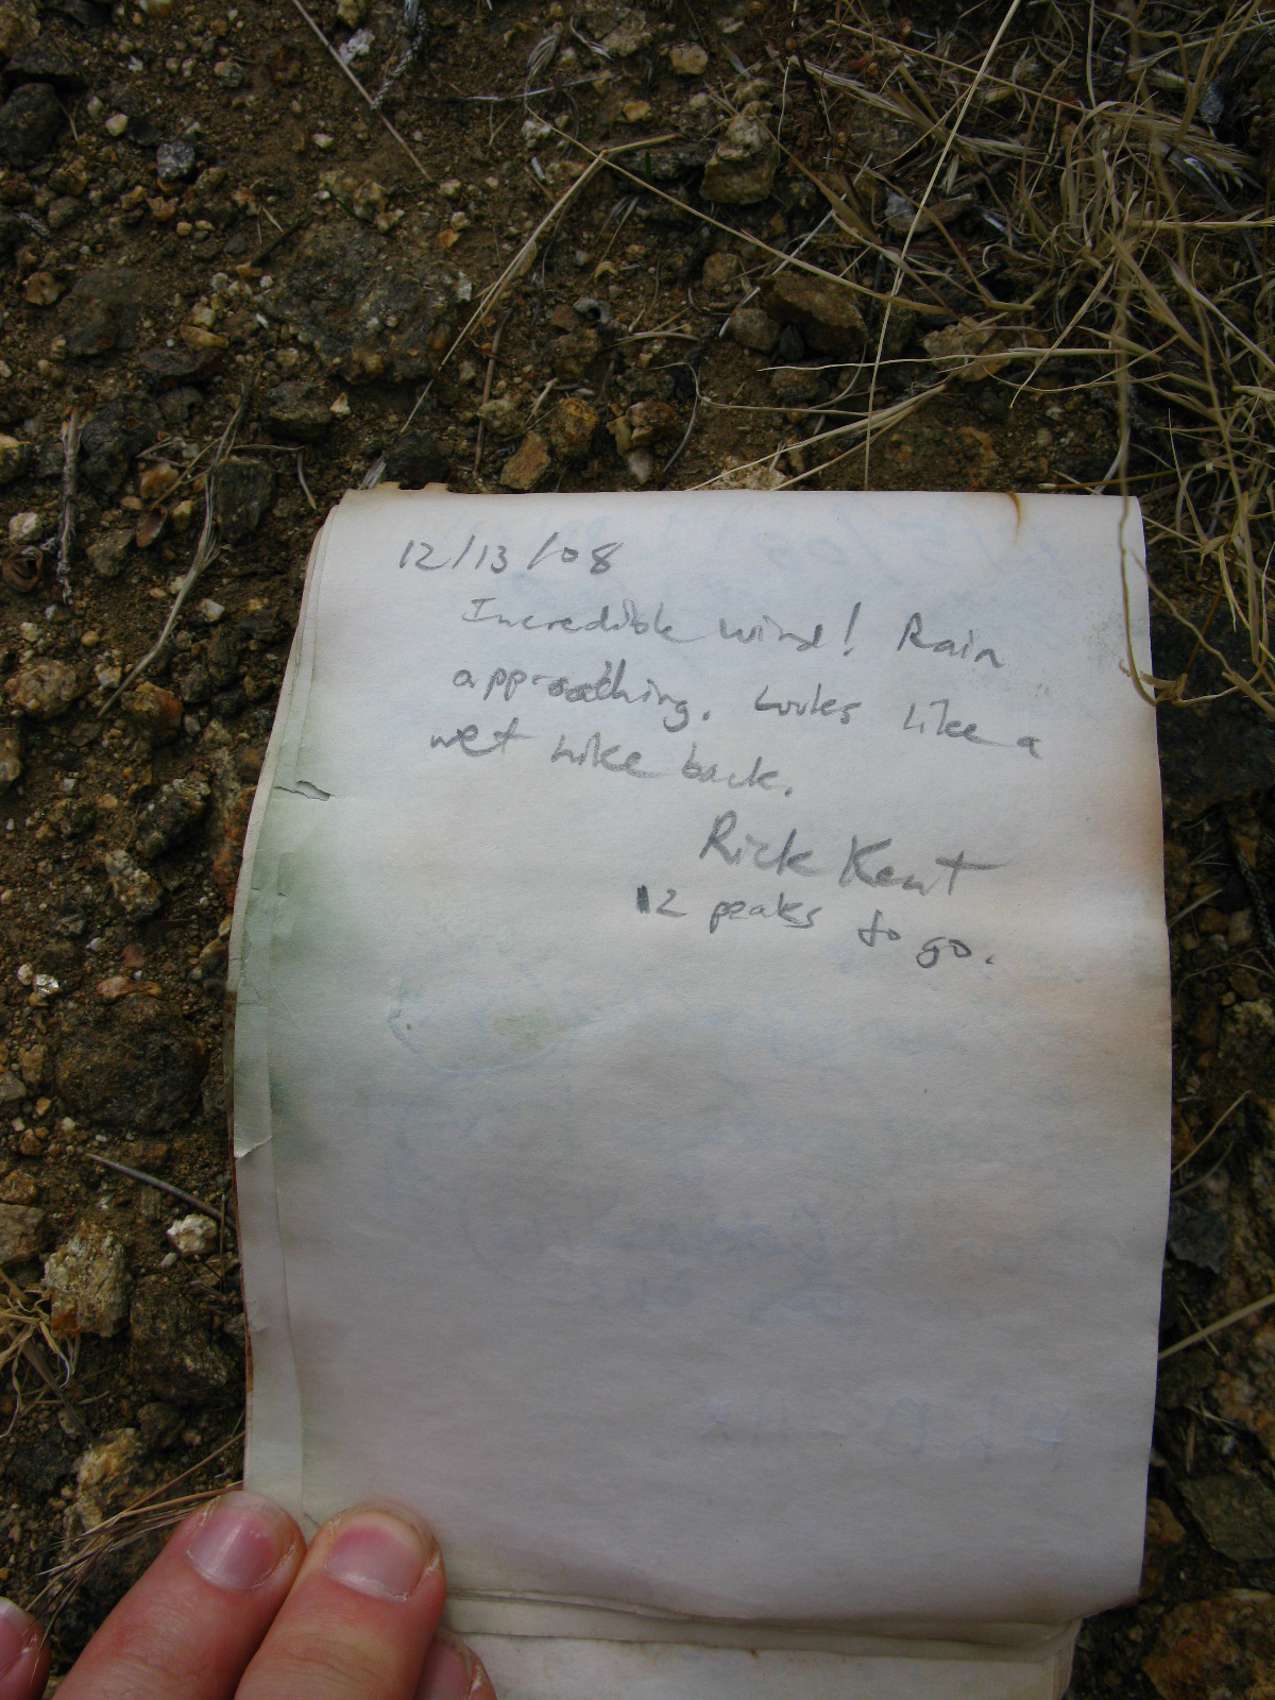 12/13/08
Incredible wind! Rain
approaching. Looks like a
wet hike back.
Rick Kent
12 peaks to go.